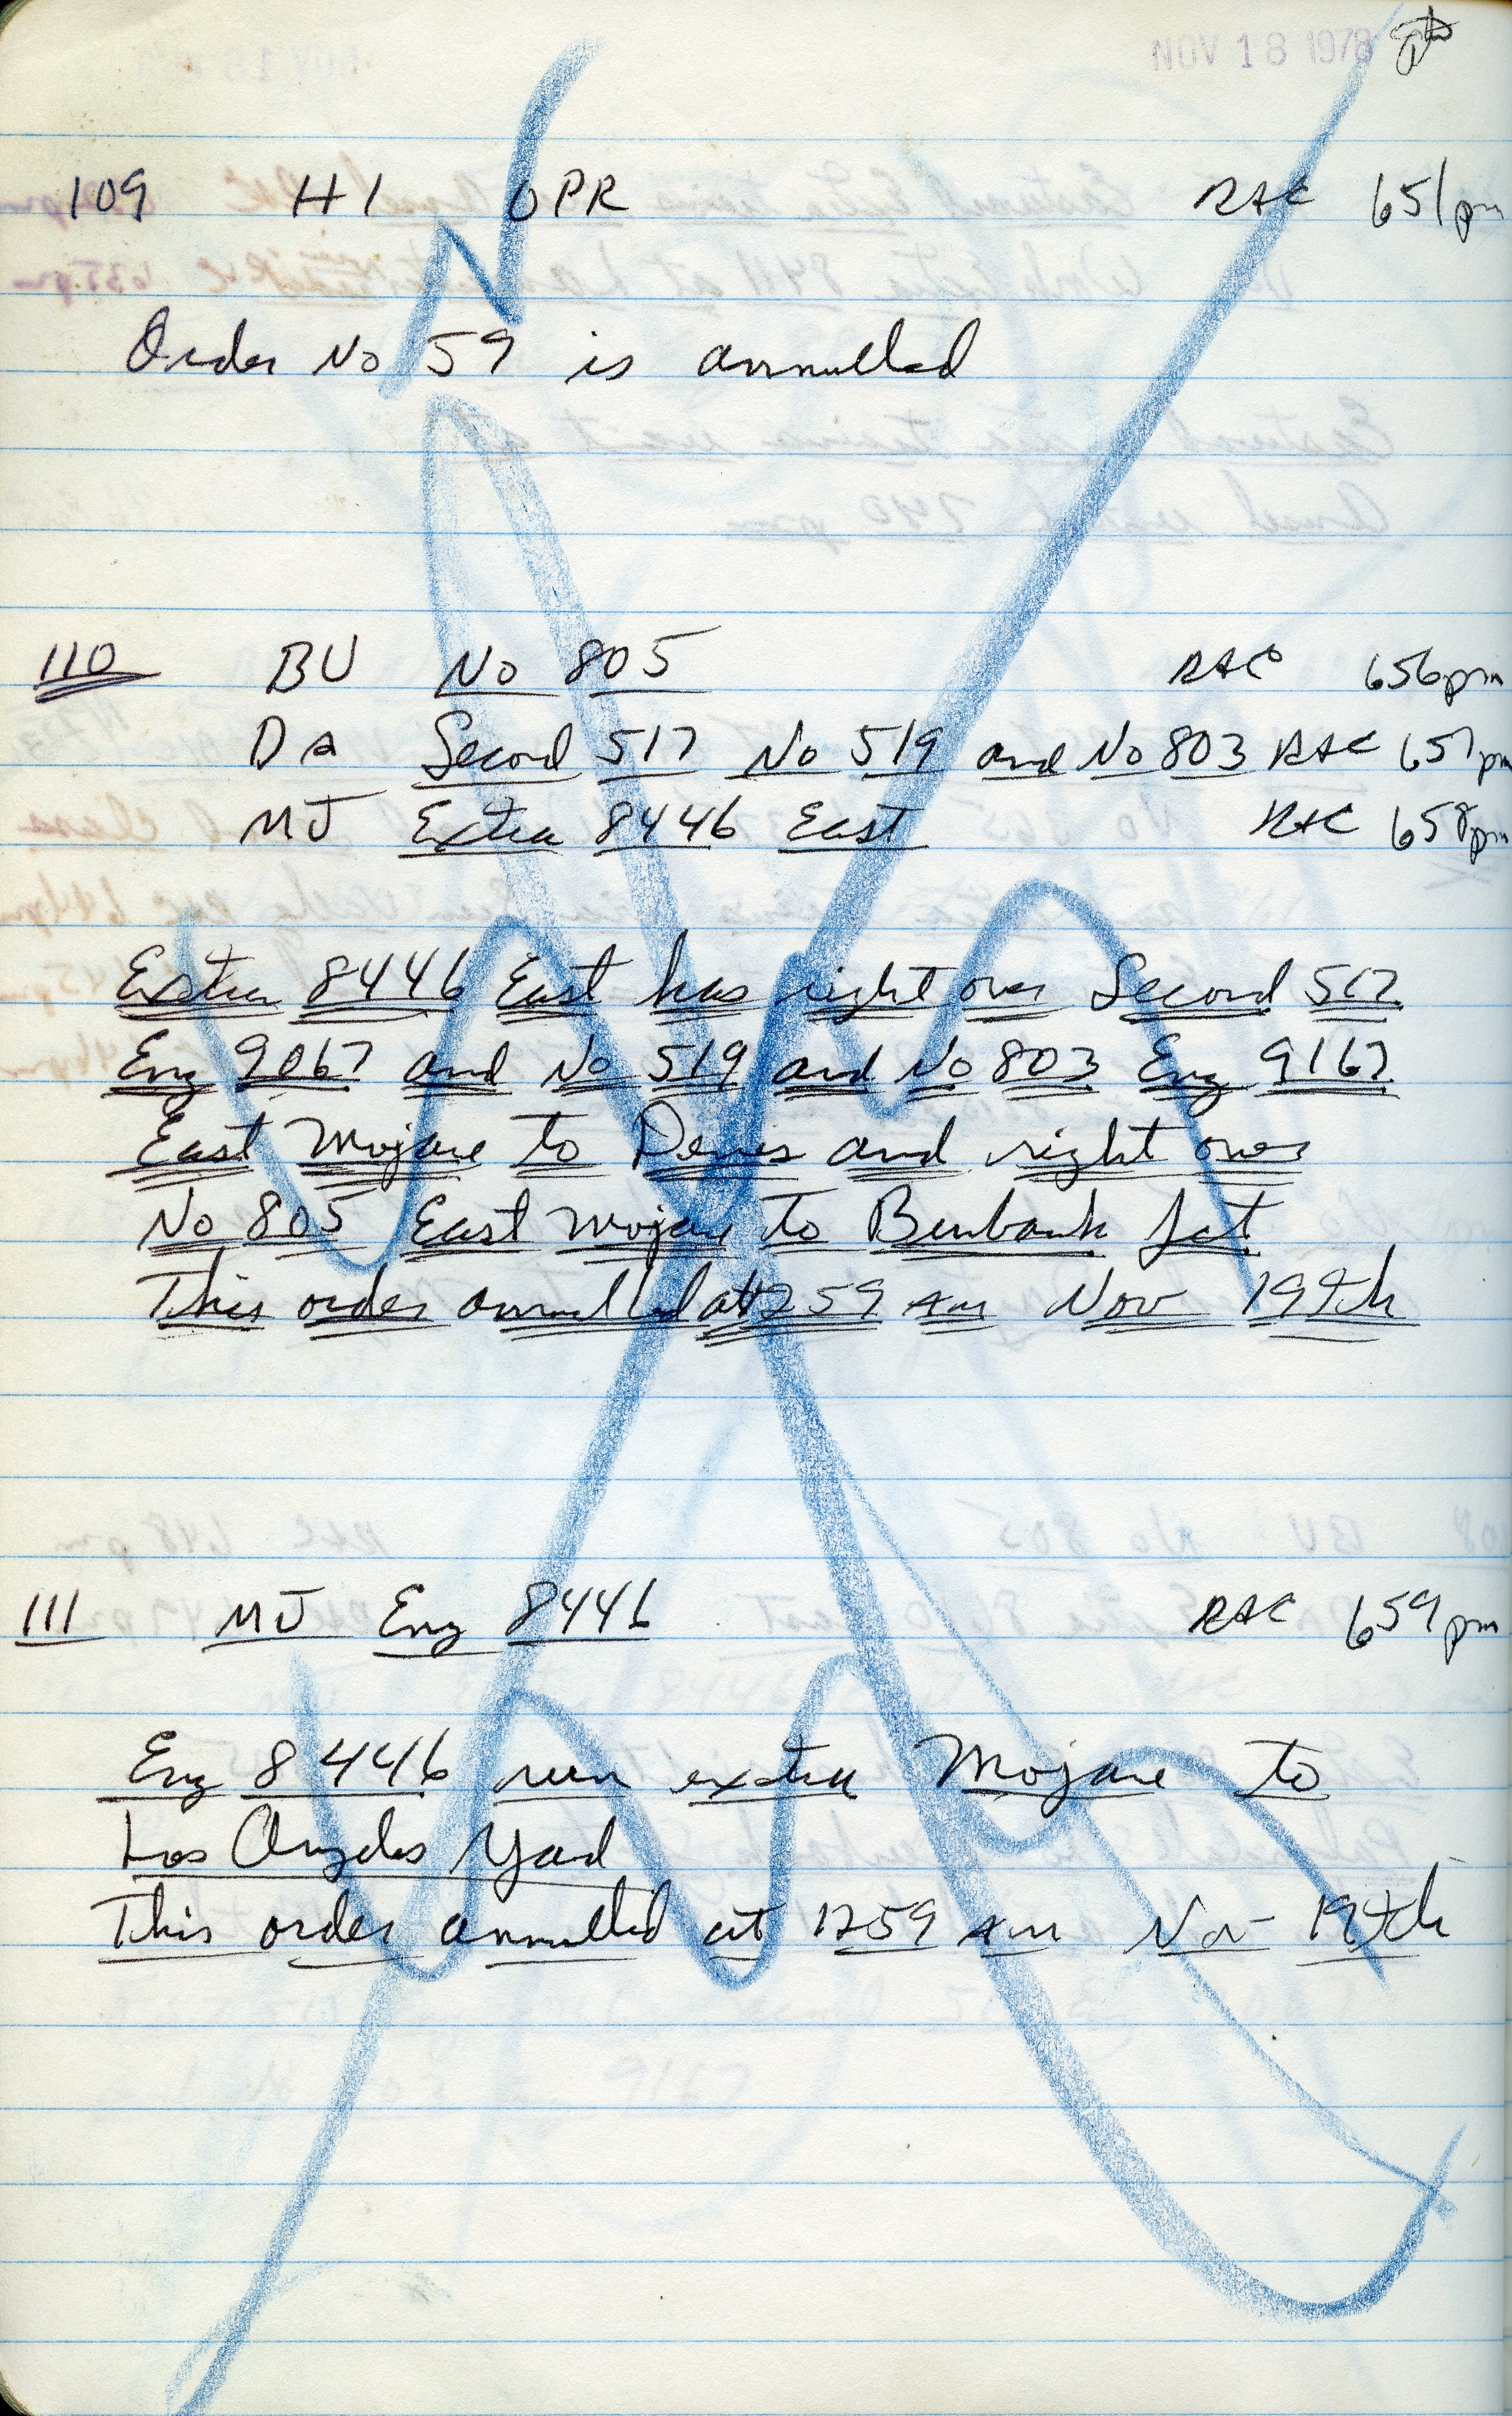 NOV 18 1978
109 HI OPR RAC 651pm
Order No 59 is annulled
110 BU No 805 RAC 656pm
DA Second 517 No 519 and No 803 RAC 657pm
MJ Extra 8446 East RAC 658pm
Extra 8446 East has right over Second 517
Eng 9067 and No 519 and No 803 Eng 9167
East Mojave to Denis and right over
No 805 East Mojave to Burbank Jct
This order annulled at 1259 AM Nov 19th
111 MJ Eng 8446 RAC 659pm
Eng 8446 run extra Mojave to
Los Angeles Yard
This order annulled at 1259 AM Nov 19th